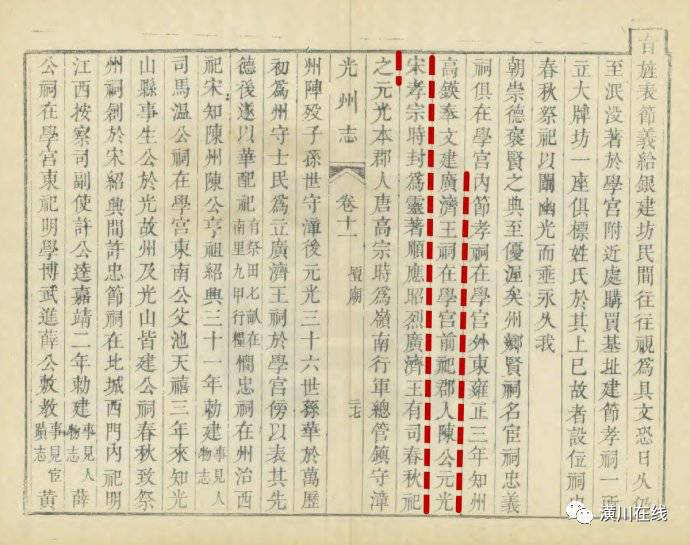 自旌表節義給銀建坊民間往往視為具文恐日久仍
至泯没著於學宮附近處購買基址建節孝祠一所
立大牌坊一座俱標姓氏於其上已故者設位祠中
春秋祭祀以闡幽光而垂永久我
朝崇德褒賢之典至優渥矣州鄉賢祠名宦祠忠義
祠俱在學宮内節孝祠在學宮外東雍正三年知州
高鍈奉文建廣濟王祠在學宮前祀郡人陳公元光
宋孝宗時封為靈著順應昭烈廣濟王有司春秋祀
之元光本郡人唐高宗時為嶺南行軍總管鎮守漳
光州志 卷十一 壇廟
州陣殁子孫世守漳後元光三十六世孫華於萬歷
初為州守士民為立廣濟王祠於學宮傍以表其先
德後遂以華配祀有祭田七畝在南里九甲行糧憫忠祠在州治西
祀宋知陳州陳公亨祖紹興三十一年勅建事見人物志
司馬温公祠在學宮東南公父池天禧三年來知光
山縣事生公於光故州及光山皆建公祠春秋致祭
州祠創於宋紹興間許忠節祠在北城西門内祀明
江西按察司副使許公逵嘉靖二年勅建事見人物志薛
公祠在學宮東祀明學博武進薛公敷教事見宦蹟志黄
潢川在线